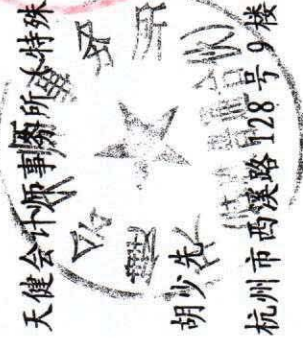 天健会计师事务所(特殊
胡少先
杭州市西溪路128号9楼